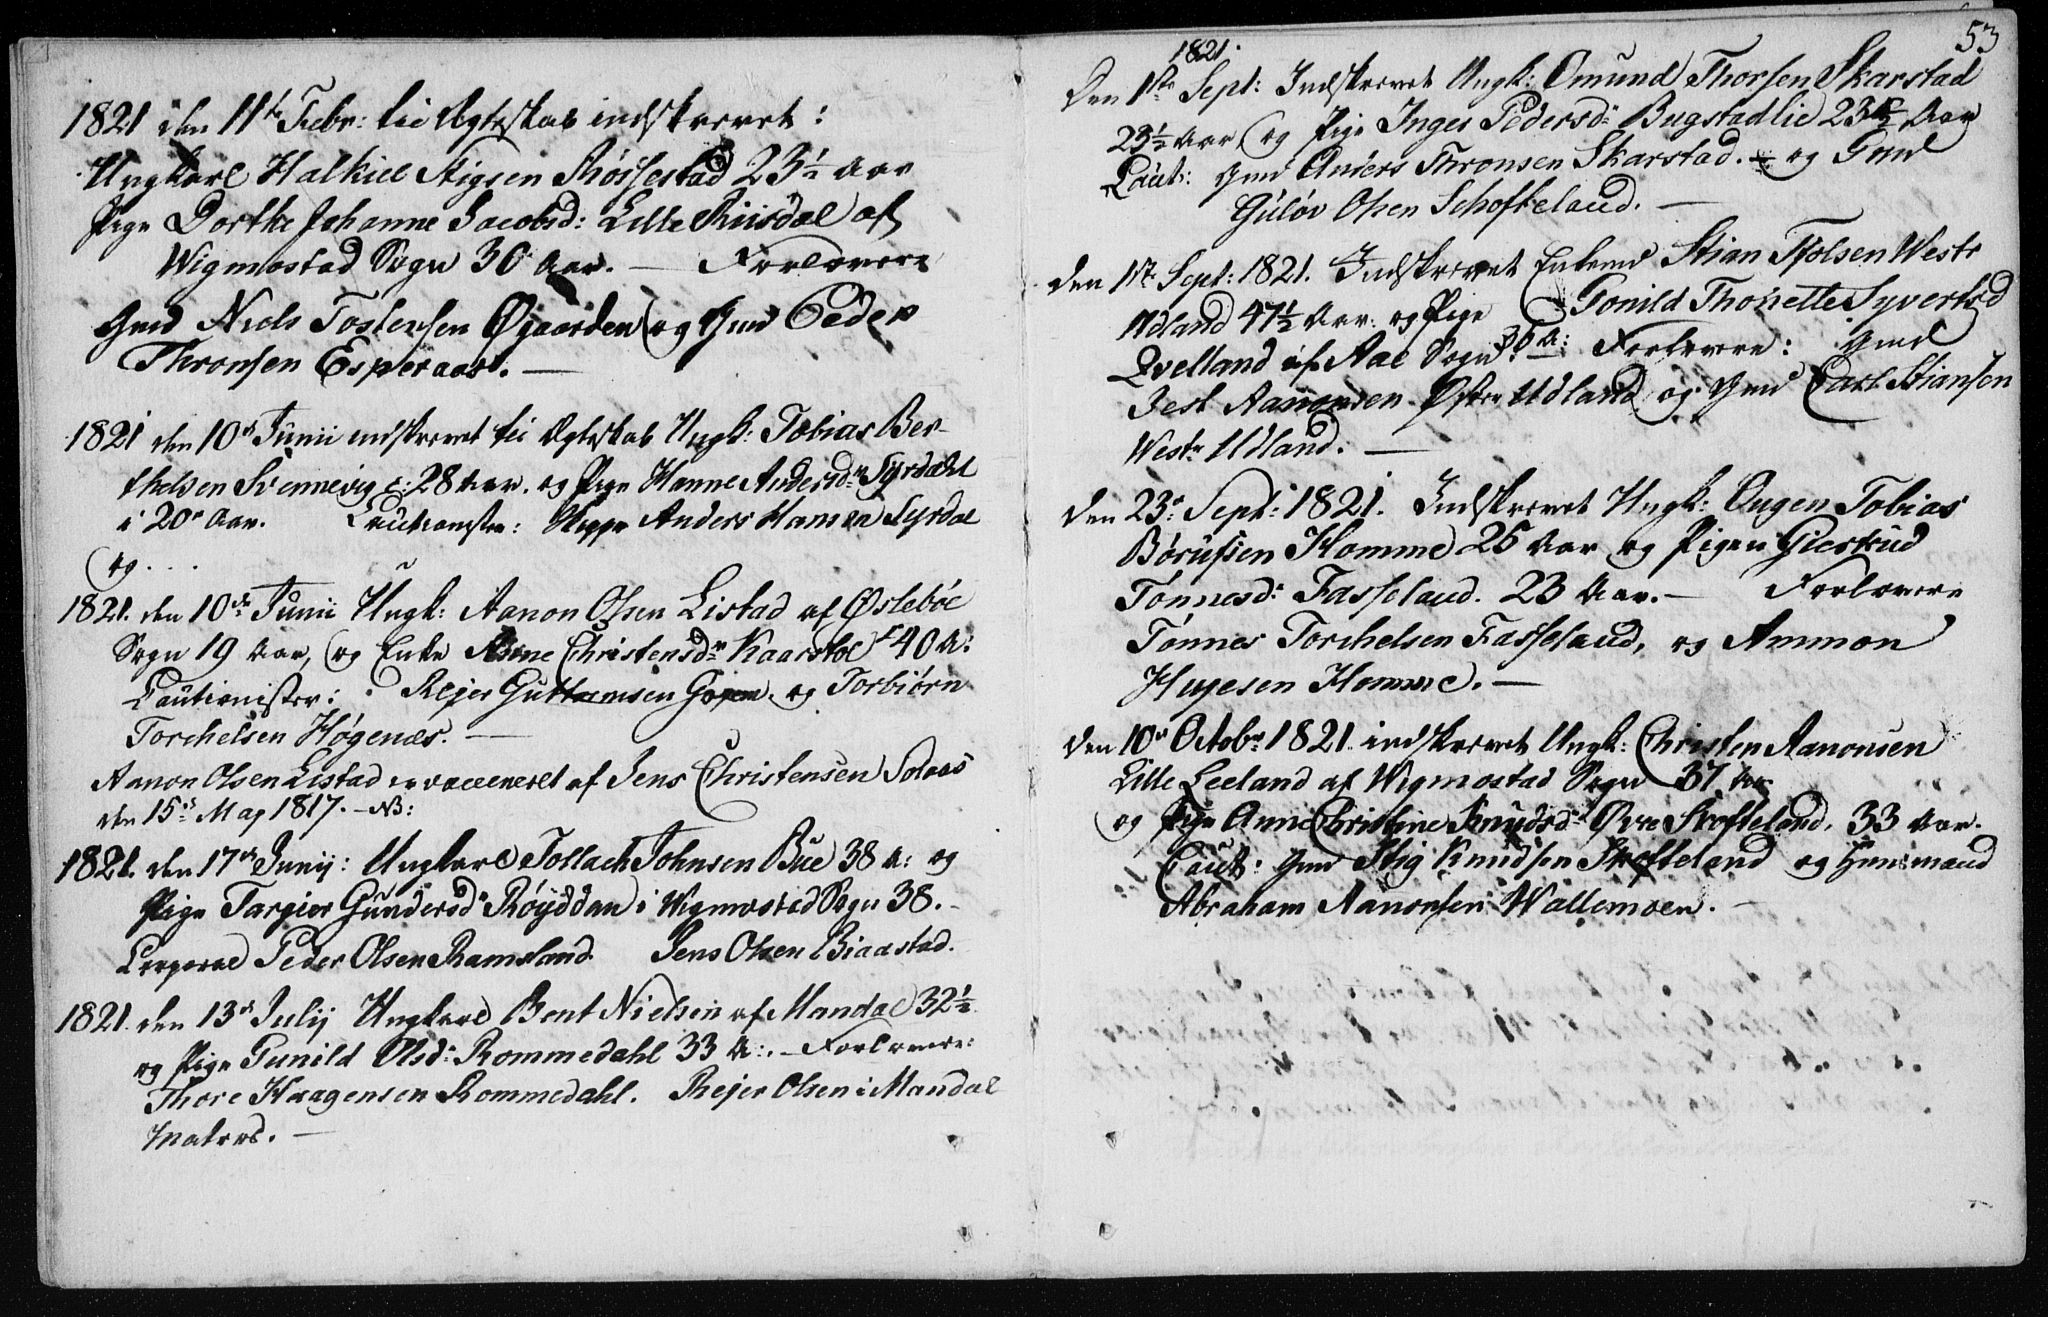 1821 den 11te Febr: til Ægteskab indskrevet:
Ungkarl Halkiel Stigsen Røssestad 23½ Aar
Pige Dorthe Johanne Jacobsd: Lille Riisdal af
Wigmostad Sogn 30 Aar. — Forlovere
Gmd Niels Tostensen Øgaarden og Gmd Peder
Thronsen Esperaas. —
1821 den 10de Junii indskrevet til Ægteskab Ungk: Tobias Ber-
thelsen Svennevig i 28 Aar. og Pige Hanne Andersdr Syrdahl
i 20de Aar. Cautionister: Anders Hansen Syrdal
og . . .
1821. den 10de Junii Ungk: Aanon Olsen Listad af Øslebøe
Sogn 19 Aar, og Enke Anne Christensdr Kaarstoe 40 A:
Cautionister: Rejer Guttormsen og Torbiørn
Torchelsen Høgenæs. —
Aanon Olsen Listad er vacceneret af Jens Christensen Solaas
den 15de May 1817. — NB:
1821. den 17de Junij: Ungkarl Tollach Johnsen Bue 38 A: og
Pige Targier Gundersdr Røyddan i Wigmostad Sogn 38. —
Corporal Peder Olsen Ramsland. Jens Olsen Biaastad.
1821. den 13de Julij Ungkarl Bent Nielsen af Mandal 32½
og Pige Gunild Olsd: Rommedahl 33 A:. — Forlovere:
Thore Haagensen Rommedahl. Rejer Olsen i Mandal
Matros. —
53
1821.
Den 1ste Sept: Indskrevet Ungk: Omund Thorsen Skarstad
23½ Aar, og Pige Inger Pedersd: Bugstadlie 23½ Aar
Caut: Gmd Anders Thronsen Skarstad. — og Gmd
Gulov Olsen Schofteland. —
Den 1ste Sept: 1821. Indskrevet Enkemd Stian Tjølsen Westr
Udland 47½ Aar. og Pige Gonild Thonette Syvertsd
Qvelland af Aae Sogn. 36 A: Forlovere: Gmd
Jesl Aanonsen Østre Udland og Gmd Carl Stiansen
Westr Udland. —
Den 23de Sept: 1821. Indskrevet Ungk: Ougen Tobias
Børufsen Homme 25 Aar og Pigen Giertrud
Tønnesd: Fasseland. 23 Aar. — Forlovere
Tønnes Torchelsen Fasseland, og Ammon
Hugesen Homme. —
Den 10de Octobr 1821. indskrevet Ungk: Christen Aanonsen
Lille Leeland af Wigmostad Sogn 37 Aar
og Pige Anne Christine Knudsdr Øvre Skofteland, 33 Aar.
Caut: Gmd Stig Knudsen Skofteland og Huusmand
Abraham Aanonsen Wallemoen. —